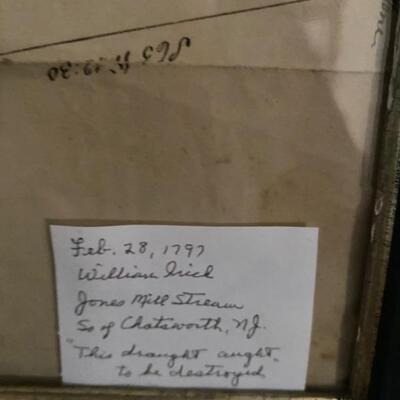 Feb. 28, 1797
William Irick
Jones Mill Stream
So of Chatsworth, NJ.
"This draught aught"
to be destroyed